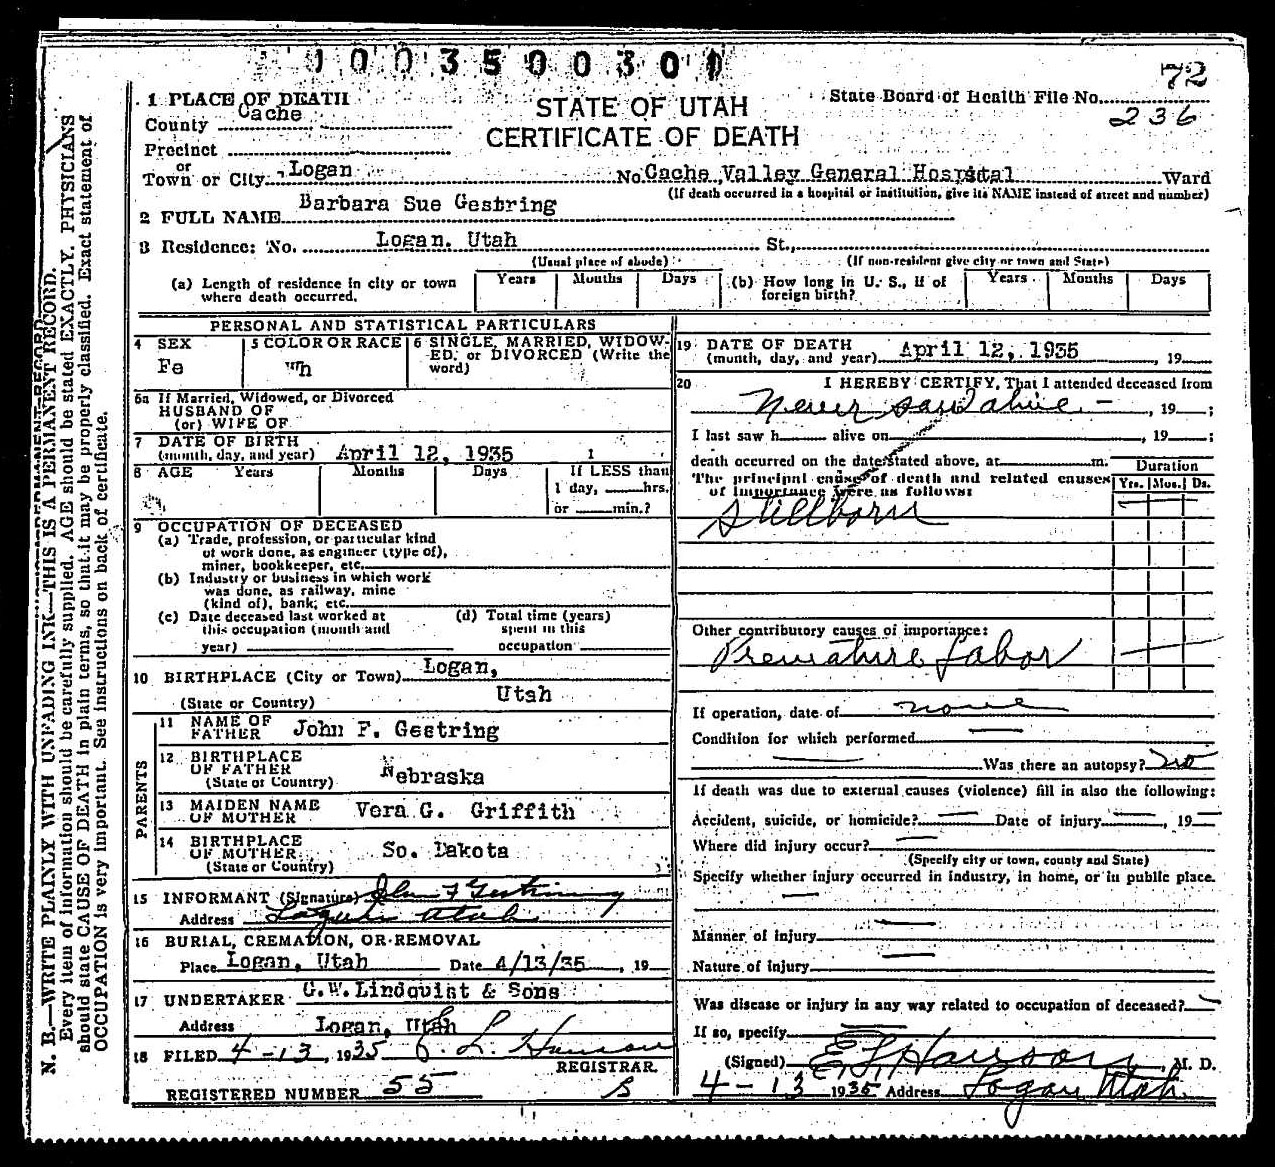 1003500301
72
1 PLACE OF DEATH
STATE OF UTAH
State Board of Health File No.
County Cache
236
CERTIFICATE OF DEATH
Precinct
or
Town or City Logan No. Cache Valley General Hospital Ward
(If death occurred in a hospital or institution, give its NAME instead of street and number)
2 FULL NAME Barbara Sue Gestring
3 Residence: No. Logan, Utah St.,
(Usual place of abode) (If non-resident give city or town and State)
(a) Length of residence in city or town where death occurred. Years Months Days (b) How long in U. S., if of foreign birth? Years Months Days
PERSONAL AND STATISTICAL PARTICULARS
4 SEX
Fe
5 COLOR OR RACE
Wh
6 SINGLE, MARRIED, WIDOW-
ED, or DIVORCED (Write the
word)
6a If Married, Widowed, or Divorced
HUSBAND OF
(or) WIFE OF
7 DATE OF BIRTH
(month, day, and year) April 12, 1935 1
8 AGE Years Months Days If LESS than
1 day, hrs.
or min.?
9 OCCUPATION OF DECEASED
(a) Trade, profession, or particular kind
of work done, as engineer (type of),
miner, bookkeeper, etc.
(b) Industry or business in which work
was done, as railway, mine
(kind of), bank; etc.
(c) Date deceased last worked at
this occupation (month and
year)
(d) Total time (years)
spent in this
occupation
10 BIRTHPLACE (City or Town) Logan,
(State or Country) Utah
PARENTS
11 NAME OF
FATHER John F. Gestring
12 BIRTHPLACE
OF FATHER
(State or Country) Nebraska
13 MAIDEN NAME
OF MOTHER Vera G. Griffith
14 BIRTHPLACE
OF MOTHER
(State or Country) So. Dakota
15 INFORMANT (Signature) John F Gestring
Address Logan Utah
16 BURIAL, CREMATION, OR REMOVAL
Place Logan, Utah Date 4/13/35, 19
17 UNDERTAKER G.W. Lindquist & Sons
Address Logan, Utah
18 FILED 4-13, 1935 L. Hansen
REGISTRAR.
REGISTERED NUMBER 55
19 DATE OF DEATH
(month, day, and year) April 12, 1935, 19
20 I HEREBY CERTIFY, That I attended deceased from
Never saw alive - , 19 ;
I last saw h alive on , 19 ;
death occurred on the date stated above, at m.
The principal cause of death and related causes
of importance were as follows:
Duration
Yrs. Mos. Ds.
Stillborn
Other contributory causes of importance:
Premature Labor
If operation, date of none
Condition for which performed
Was there an autopsy? no
If death was due to external causes (violence) fill in also the following:
Accident, suicide, or homicide? Date of injury , 19
Where did injury occur?
(Specify city or town, county and State)
Specify whether injury occurred in industry, in home, or in public place.
Manner of injury
Nature of injury
Was disease or injury in any way related to occupation of deceased?
If so, specify
(Signed) E. L. Hanson, M. D.
4-13 1935 Address Logan Utah
N. B.—WRITE PLAINLY WITH UNFADING INK—THIS IS A PERMANENT RECORD.
Every item of information should be carefully supplied. AGE should be stated EXACTLY. PHYSICIANS
should state CAUSE OF DEATH in plain terms, so that it may be properly classified. Exact statement of
OCCUPATION is very important. See instructions on back of certificate.